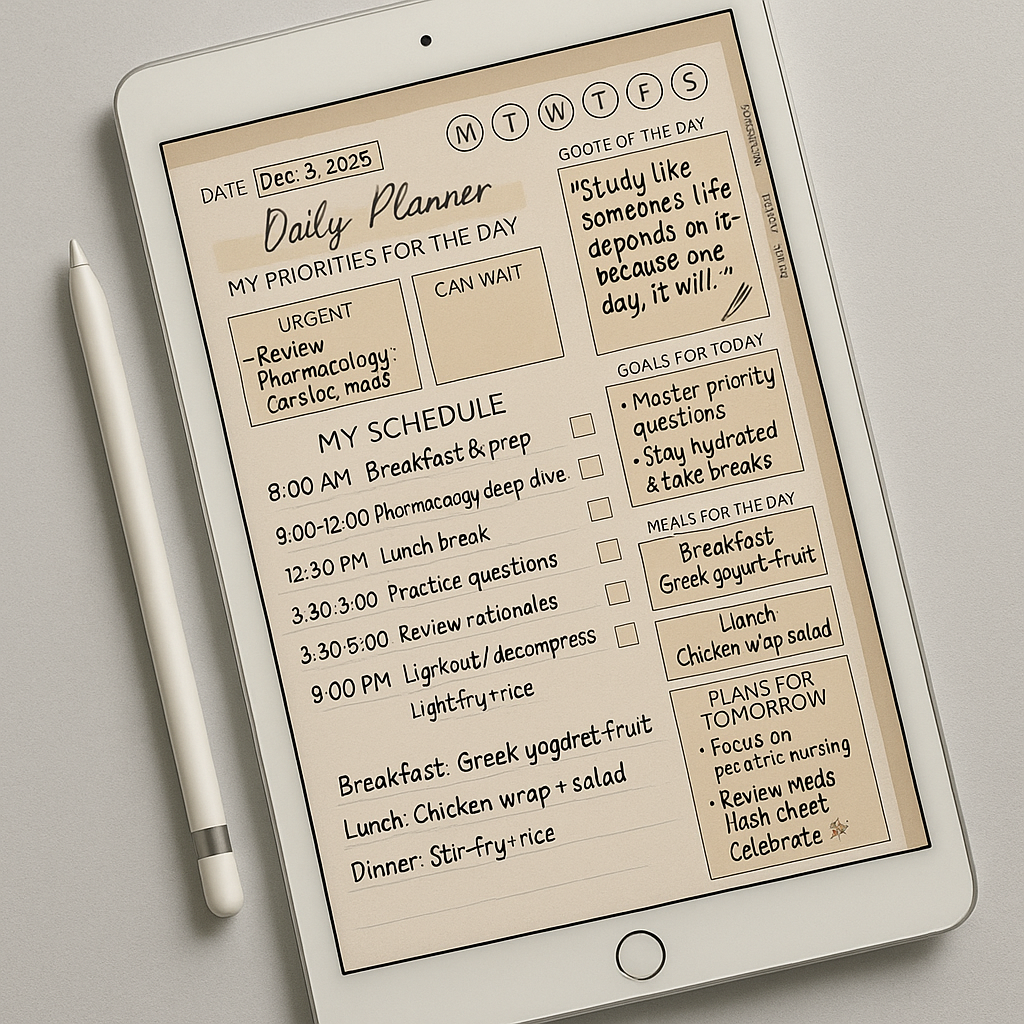 M T W T F S
DATE Dec: 3, 2025
Daily Planner
MY PRIORITIES FOR THE DAY
URGENT
-Review
Pharmacology:
Carsloc, mads
CAN WAIT
GOOTE OF THE DAY
"Study like
someones life
deponds on it-
because one
day, it will."
MY SCHEDULE
8:00 AM Breakfast & prep
9:00-12:00 Phormacaogy deep dive.
12:30 PM Lunch break
3.30:3:00 Practice questions
3:30-5:00 Review rationales
9:00 PM Ligrkout/decompress
Lightfry+rice
Breakfast: Greek yogdret-fruit
Lunch: Chicken wrap + salad
Dinner: Stir-fry+rice
GOALS FOR TODAY
• Master priority
questions
• Stay hydrated
& take breaks
MEALS FOR THE DAY
Breakfast
Greek goyurt-fruit
Llanch
Chicken w'ap salad
PLANS FOR
TOMORROW
• Focus on
pecatric nursing
• Review Meds
Hash cheet
Celebrate